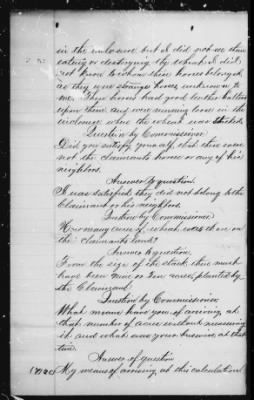 in the enclosure but I did not see them
eating or destroying by which I did
not know to whom these horses belonged
as they were strange horses unknown to
me. These horses had good leather halters
upon them and were running loose in the
inclosure where the wheat was stacked.
Question by Commissioner
Did you satisfy yourself that these were
not the claimants horses or any of his
neighbors.
Answer to question
I was satisfied they did not belong to the
Claimant or his neighbors.
Question by Commissioner
How many acres of wheat was there on
the claimants land?
Answer to question
From the size of the stack there must
have been nine or ten acres planted by
the Claimant.
Question by Commissioner
What means have you of arriving at
that number of acres without measuring
it and what was your business at that
time.
Answer of question
My means of arriving at this calculation